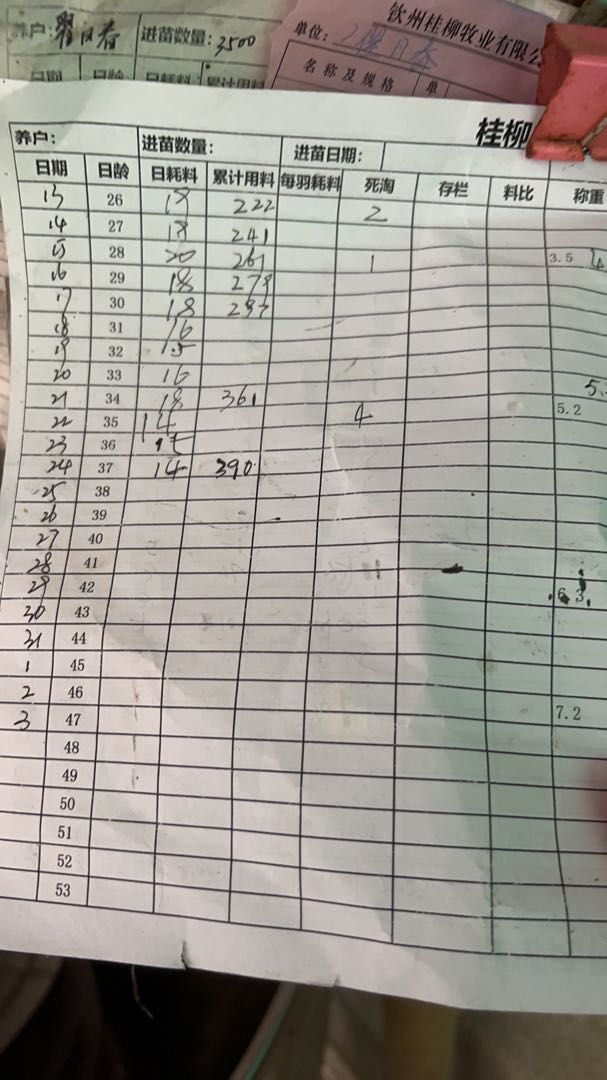 养户: 进苗数量: 3500
钦州桂柳牧业有限公
单位:
名称及规格 单
日期 日龄 日耗料 累计用料
桂柳
养户: 进苗数量: 进苗日期:
日期 日龄 日耗料 累计用料 每羽耗料 死淘 存栏 料比 称重
13 26 18 222 2
14 27 18 241
15 28 20 261 1 3.5
16 29 18 279
17 30 18 297
18 31 16
19 32 15
20 33 16
21 34 18 361 5.
22 35 14 4 5.2
23 36 15
24 37 14 390
25 38
26 39
27 40
28 41
29 42 6.3
30 43
31 44
1 45
2 46
3 47 7.2
48
49
50
51
52
53